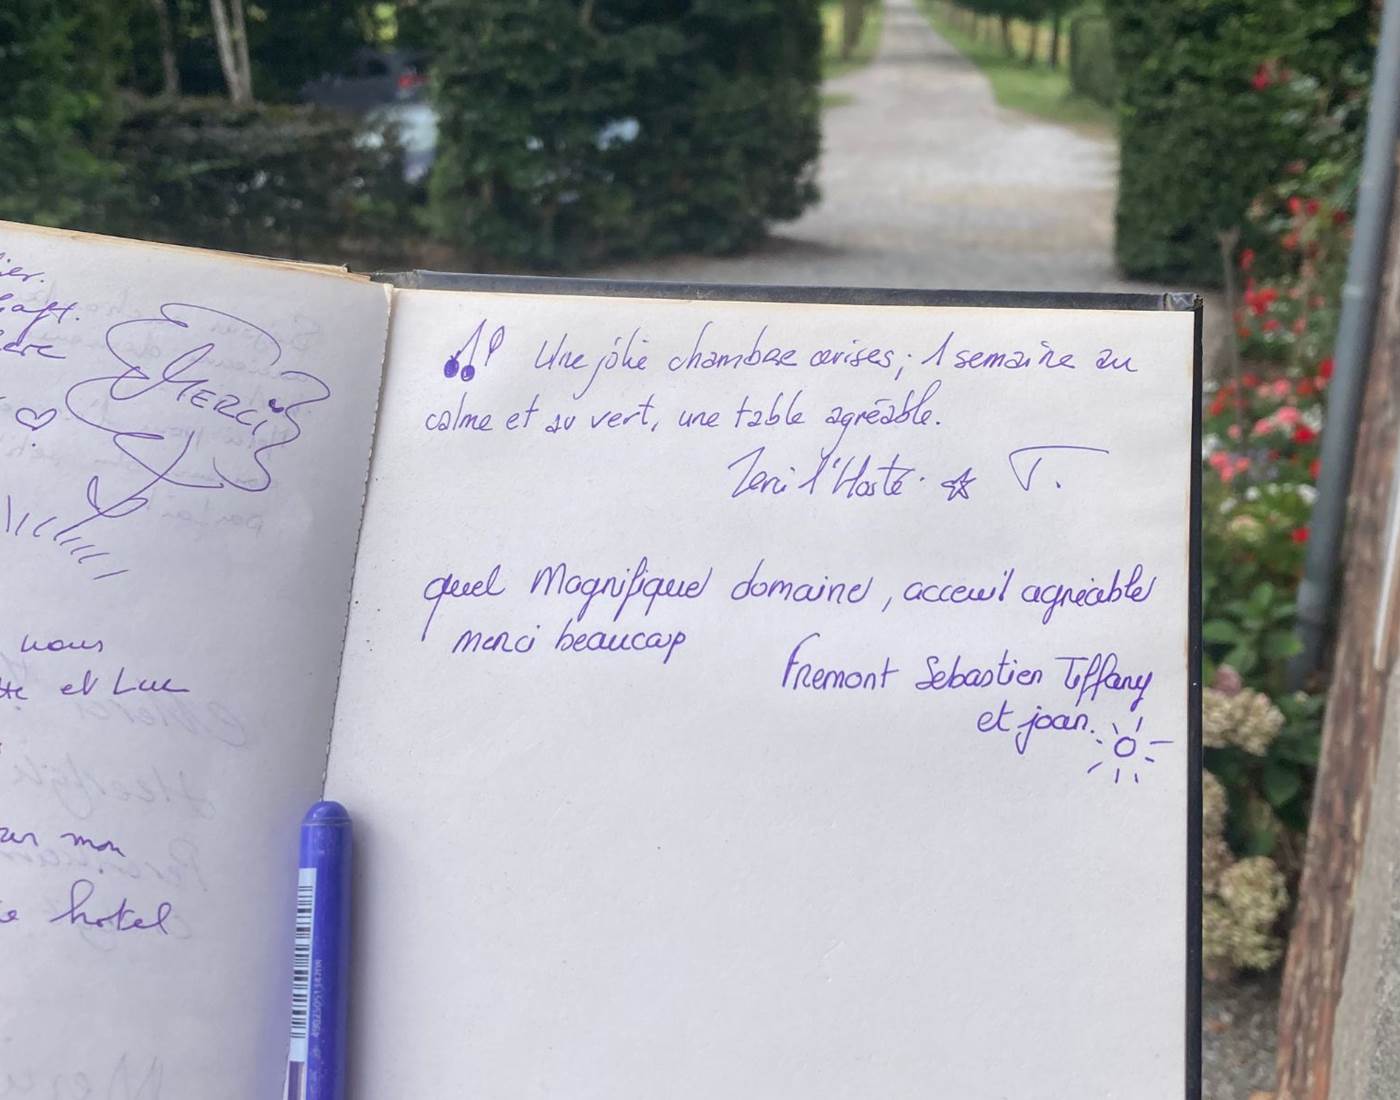 ier.
haft.
MERCI
nous
et Luc
mon
hotel
Une jolie chambre cerises, 1 semaine au
calme et au vert, une table agréable.
l'Hoste. T.
quel Magnifique domaine, acceuil agréable
merci beaucoup
Fremont Sebastien Tiffany
et joan.
4902505134708